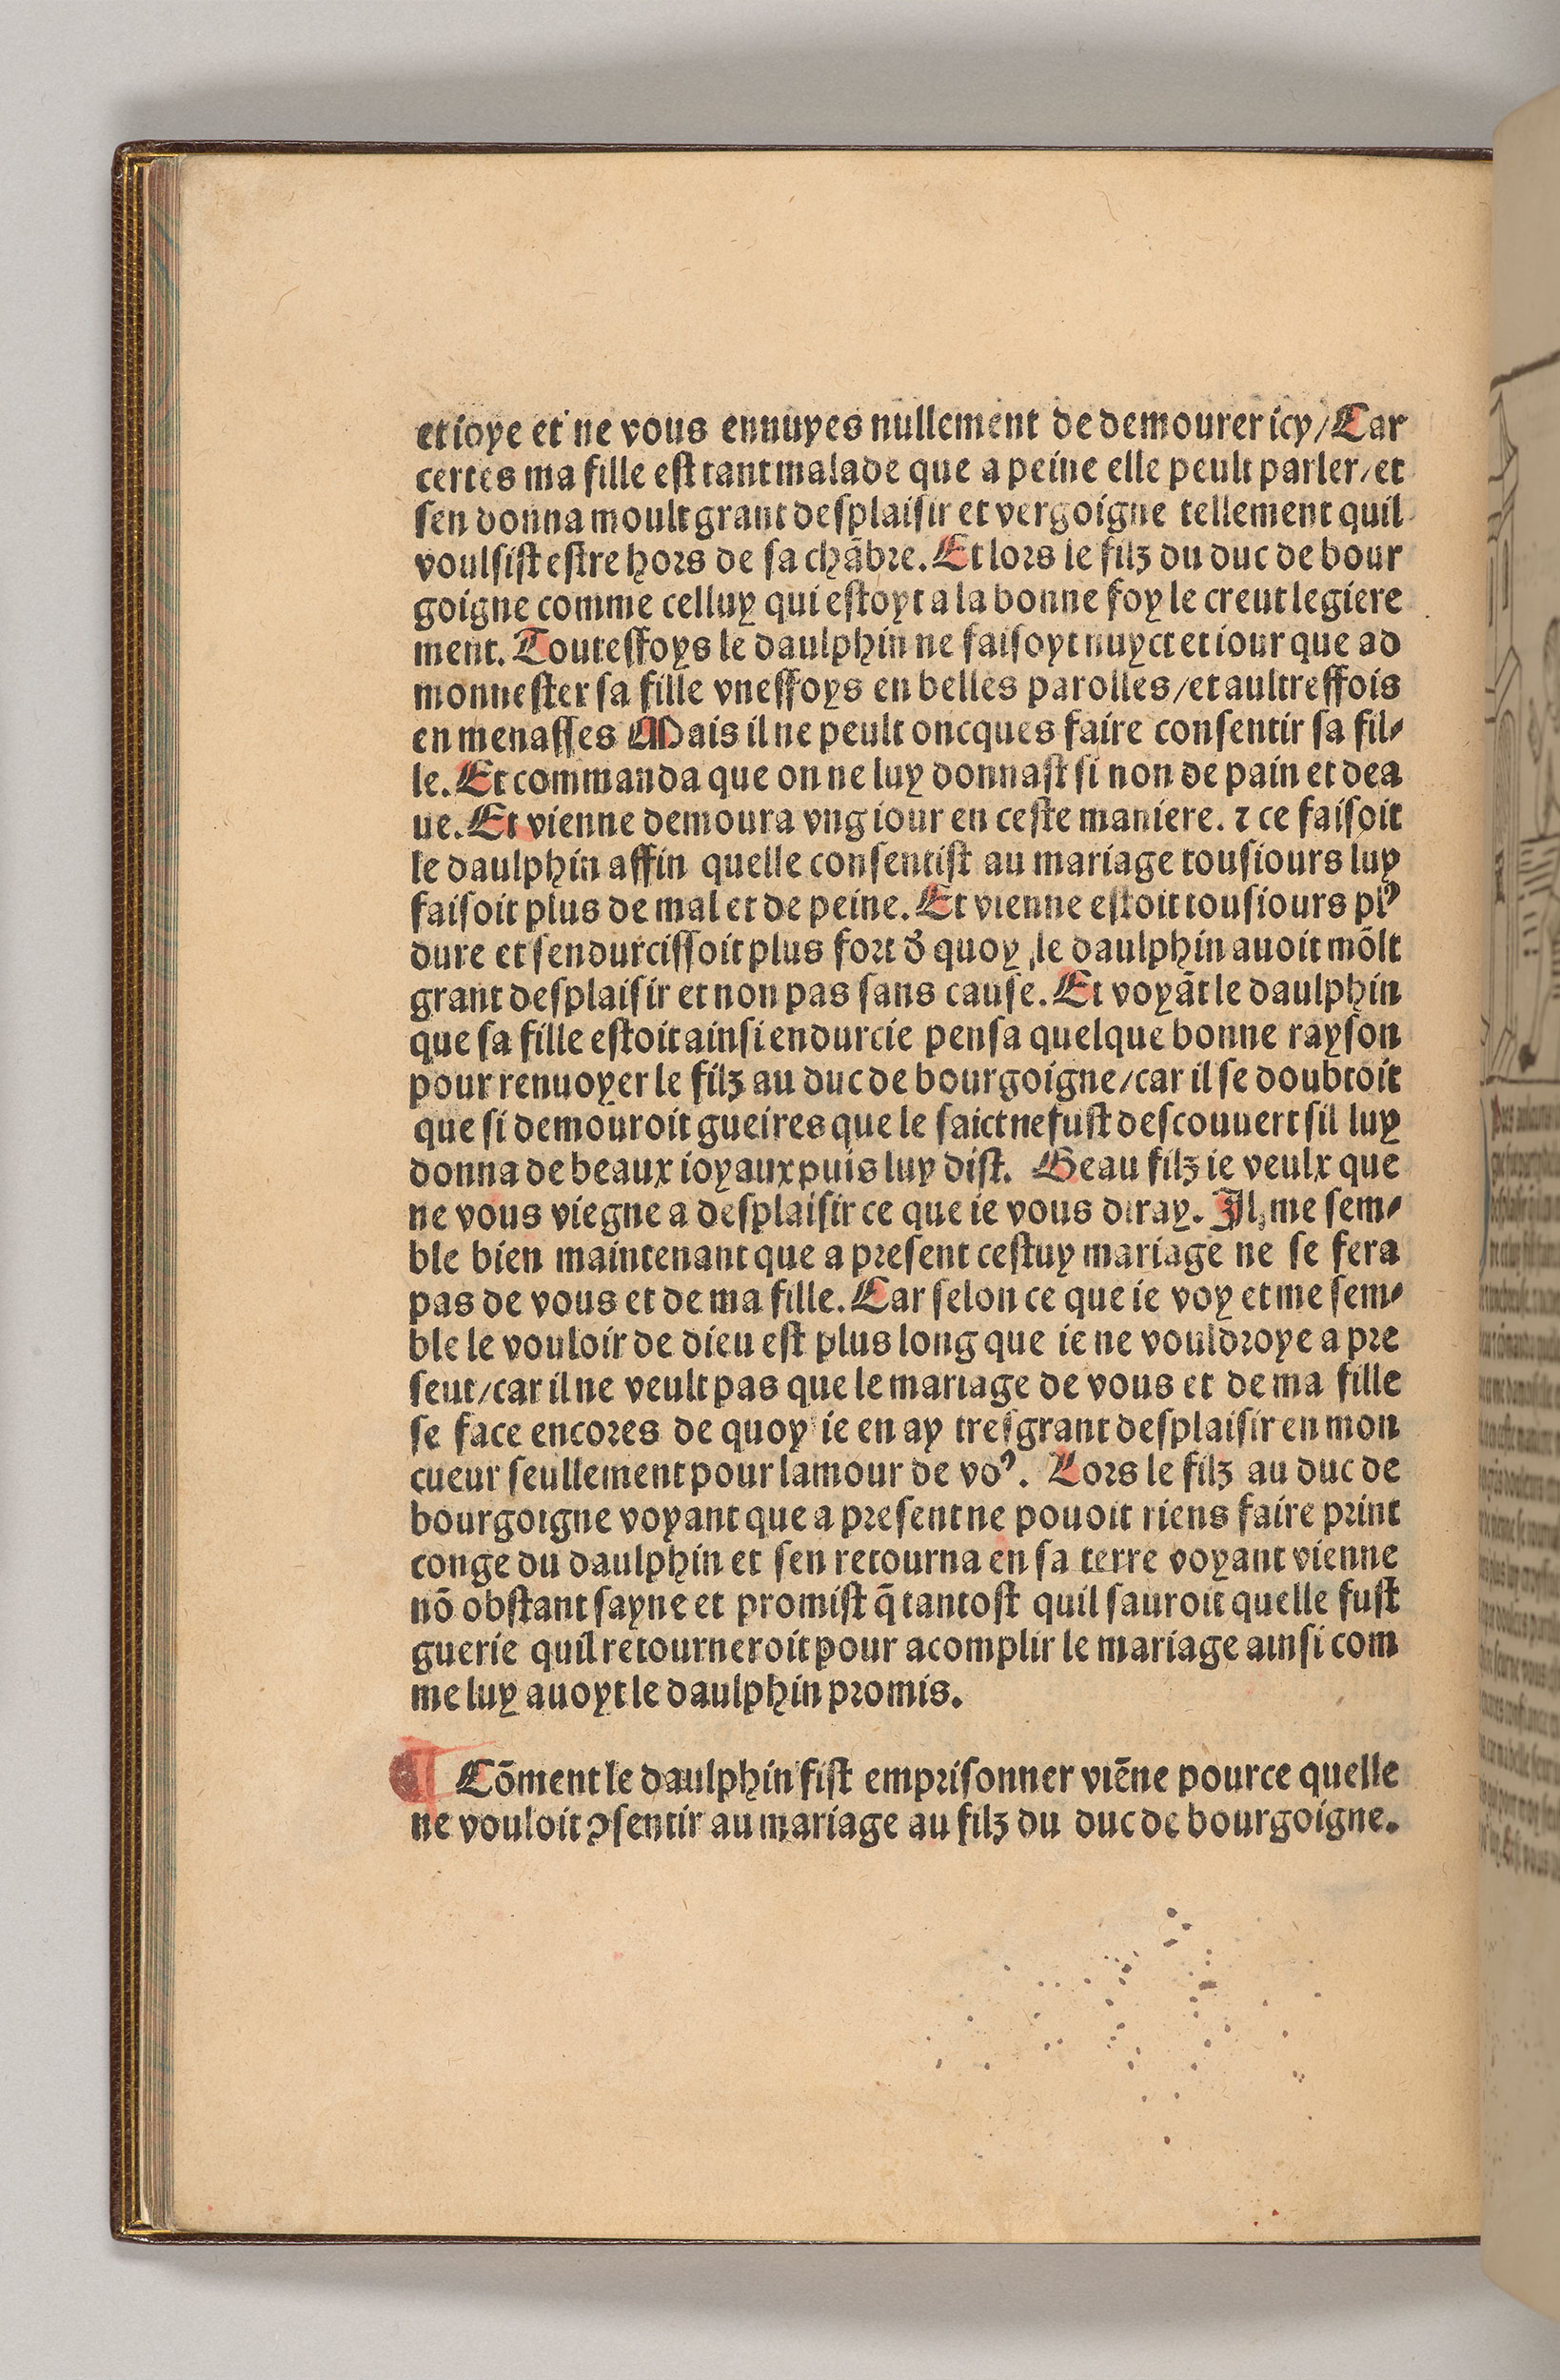 et ioye et ne vous ennuyes nullement de demourer icy/Car
certes ma fille est tant malade que a peine elle peult parler/et
sen donna moult grant desplaisir et vergoigne tellement quil
voulsist estre hors de sa chãbre. Et lors le filz du duc de bour
goigne comme celluy qui estoyt a la bonne foy le creut legiere
ment. Touteffoys le daulphin ne faisoyt nuyct et iour que ad
monnester sa fille vneffoys en belles parolles/et aultreffois
en menasses Mais il ne peult oncques faire consentir sa fil⸗
le. Et commanda que on ne luy donnast si non de pain et dea
ue. Et vienne demoura vng iour en ceste maniere. ⁊ ce faisoit
le daulphin affin quelle consentist au mariage tousiours luy
faisoit plus de mal et de peine. Et vienne estoit tousiours plꝰ
dure et sendurcissoit plus fort d̃ quoy le daulphin auoit mõlt
grant desplaisir et non pas sans cause. Et voyãt le daulphin
que sa fille estoit ainsi endurcie pensa quelque bonne rayson
pour renuoyer le filz au duc de bourgoigne/car il se doubtoit
que si demouroit gueires que le faict ne fust descouuert sil luy
donna de beaux ioyaux puis luy dist. Beau filz ie veulx que
ne vous viegne a desplaisir ce que ie vous diray. Il me sem⸗
ble bien maintenant que a present cestuy mariage ne se fera
pas de vous et de ma fille. Car selon ce que ie voy et me sem⸗
ble le vouloir de dieu est plus long que ie ne vouldroye a pre
seut/car il ne veult pas que le mariage de vous et de ma fille
se face encores de quoy ie en ay tresgrant desplaisir en mon
cueur seullement pour lamour de voꝰ. Lors le filz au duc de
bourgoigne voyant que a present ne pouoit riens faire print
conge du daulphin et sen retourna en sa terre voyant vienne
nõ obstant sayne et promist q̃ tantost quil sauroit quelle fust
guerie quil retourneroit pour acomplir le mariage ainsi com
me luy auoyt le daulphin promis.
¶ Cõment le daulphin fist emprisonner viẽne pource quelle
ne vouloit ꝯsentir au mariage au filz du duc de bourgoigne.